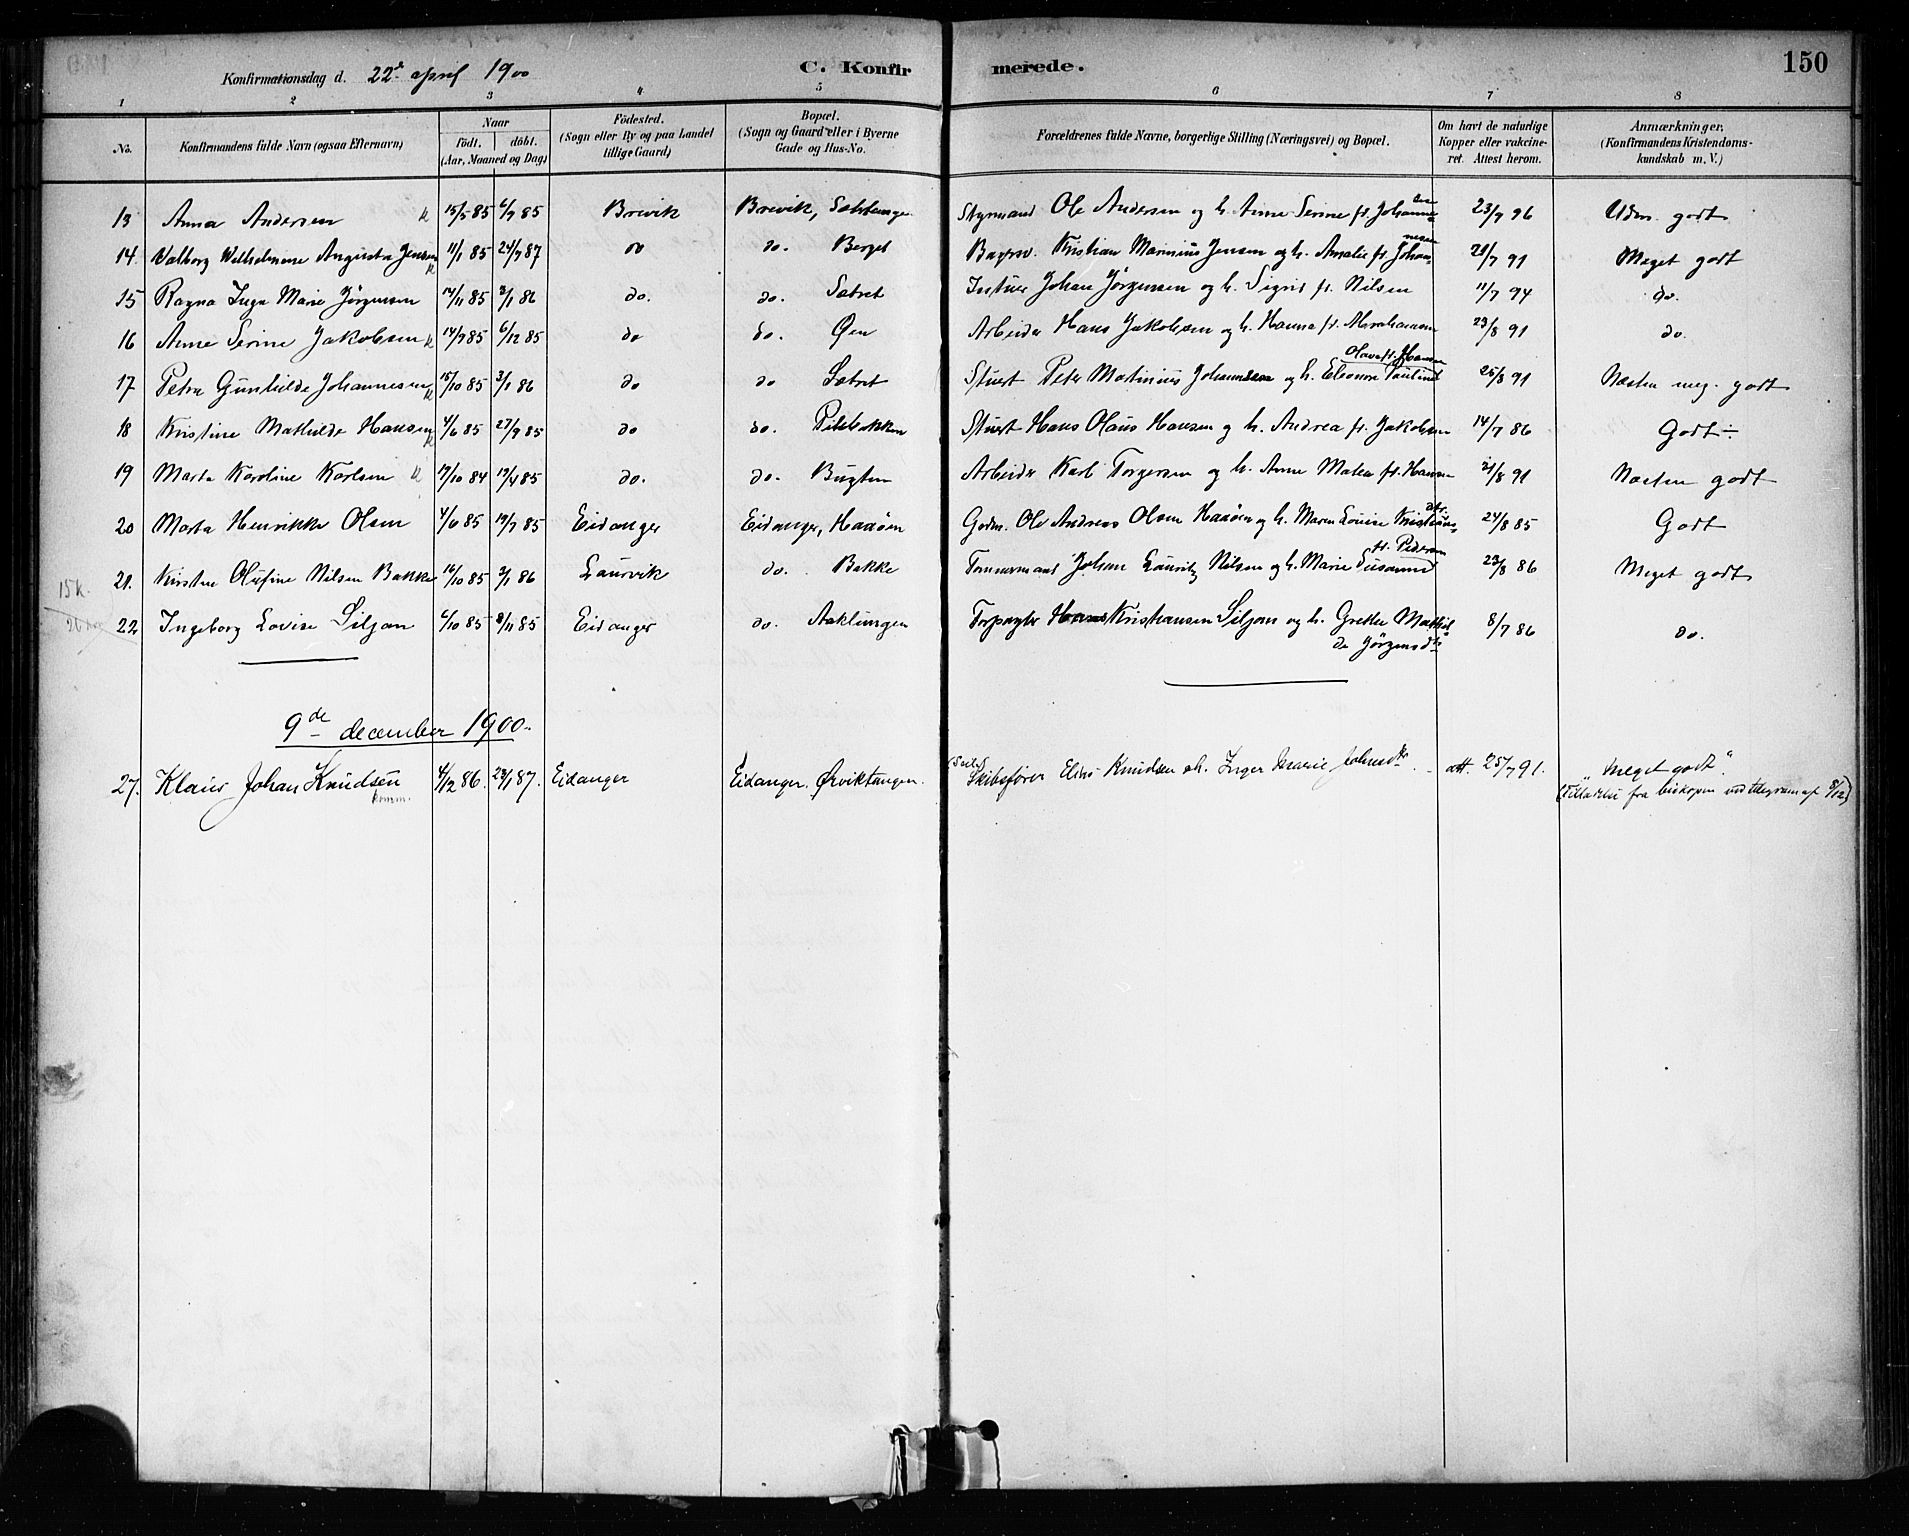 Konfirmationsdag d. 22de april 1900
C. Konfirmerede.
150
1 2 3 4 5 6 7 8
No. Konfirmandens fulde Navn (ogsaa Efternavn) Naar födt. döbt. (Aar, Maaned og Dag) Födested. (Sogn eller By og paa Landet tillige Gaard) Bopæl. (Sogn og Gaard eller i Byerne Gade og Hus-No. Forældrenes fulde Navne, borgerlige Stilling (Næringsvei) og Bopæl. Om havt de naturlige Kopper eller vakcineret. Attest herom. Anmærkninger. (Konfirmandens Kristendomskundskab m. V.)
13 Anna Andersen k 15/5 85 6/7 85 Brevik Brevik, Styrmand Ole Andersen og h. Anne Serine f. 23/7 96 Udm. godt
14 Valborg Wilhelmine Augusta Jensen k 11/1 85 24/7 87 do do. Berget Kristian Marinius Jensen og h. Amalie f. Johannesen 21/7 91 Meget godt
15 Ragna Inga Marie Jörgensen 14/11 85 3/1 86 do. do. Sætret Johan Jörgensen og h. Sigrid f. Nilsen 11/7 94 do.
16 Anne Serine Jakobsen k 14/9 85 6/12 85 do do. Øen Arbeider Hans Jakobsen og h. Hanna f. Abrahamsen 23/8 91 do.
17 Petra Gunhilde Johannesen k 15/10 85 3/1 86 do do Sætret Stuert Peter Matinius Johannesen og h. Eleonora Pauline Olava f. Hansen 25/8 91 Næsten meg. godt
18 Kristine Mathilde Hansen k 4/6 85 27/9 85 do do. Stuert Hans Olaus Hansen og h. Andrea f. Jakobsen 14/7 86 Godt ÷
19 Marta Karoline Karlsen k 17/10 84 19/4 85 do. do. Bugten Arbeider Karl Torgersen og h. Anne Matea f. Hansen 21/8 91 Næsten godt
20 Marta Henrikke Olsen 4/6 85 19/7 85 Eidanger Eidanger, Haaöen Gadm. Ole Andreas Olsen Haaöen og h. Maren Louise Kristiansdtr. 24/8 85 Godt
15 k.
21. Kirsten Olufine Nilsen Bakke 16/10 85 3/1 86 Laurvik do. Bakke Tømmermand Johan Lauritz Nilsen og h. Marie Susanne f. Pedersen 23/8 86 Meget godt
22 Ingeborg Lovise Siljan 4/10 85 8/11 85 Eidanger do. Aaklungen Forpagter Hans Kristiansen Siljan og h. Grethe Mathilde Jörgensdtr 8/7 86 do.
9de december 1900.
27. Klaus Johan Knudsen 4/12 86. 23/1 87. Eidanger Eidanger. Ørviktangen. Skibsfører Knudsen oh. Inger Marie Johnsdtr. att. 25/7 91. "Meget godt".
(Tilladelse fra biskopen ved telegram af 8/12)